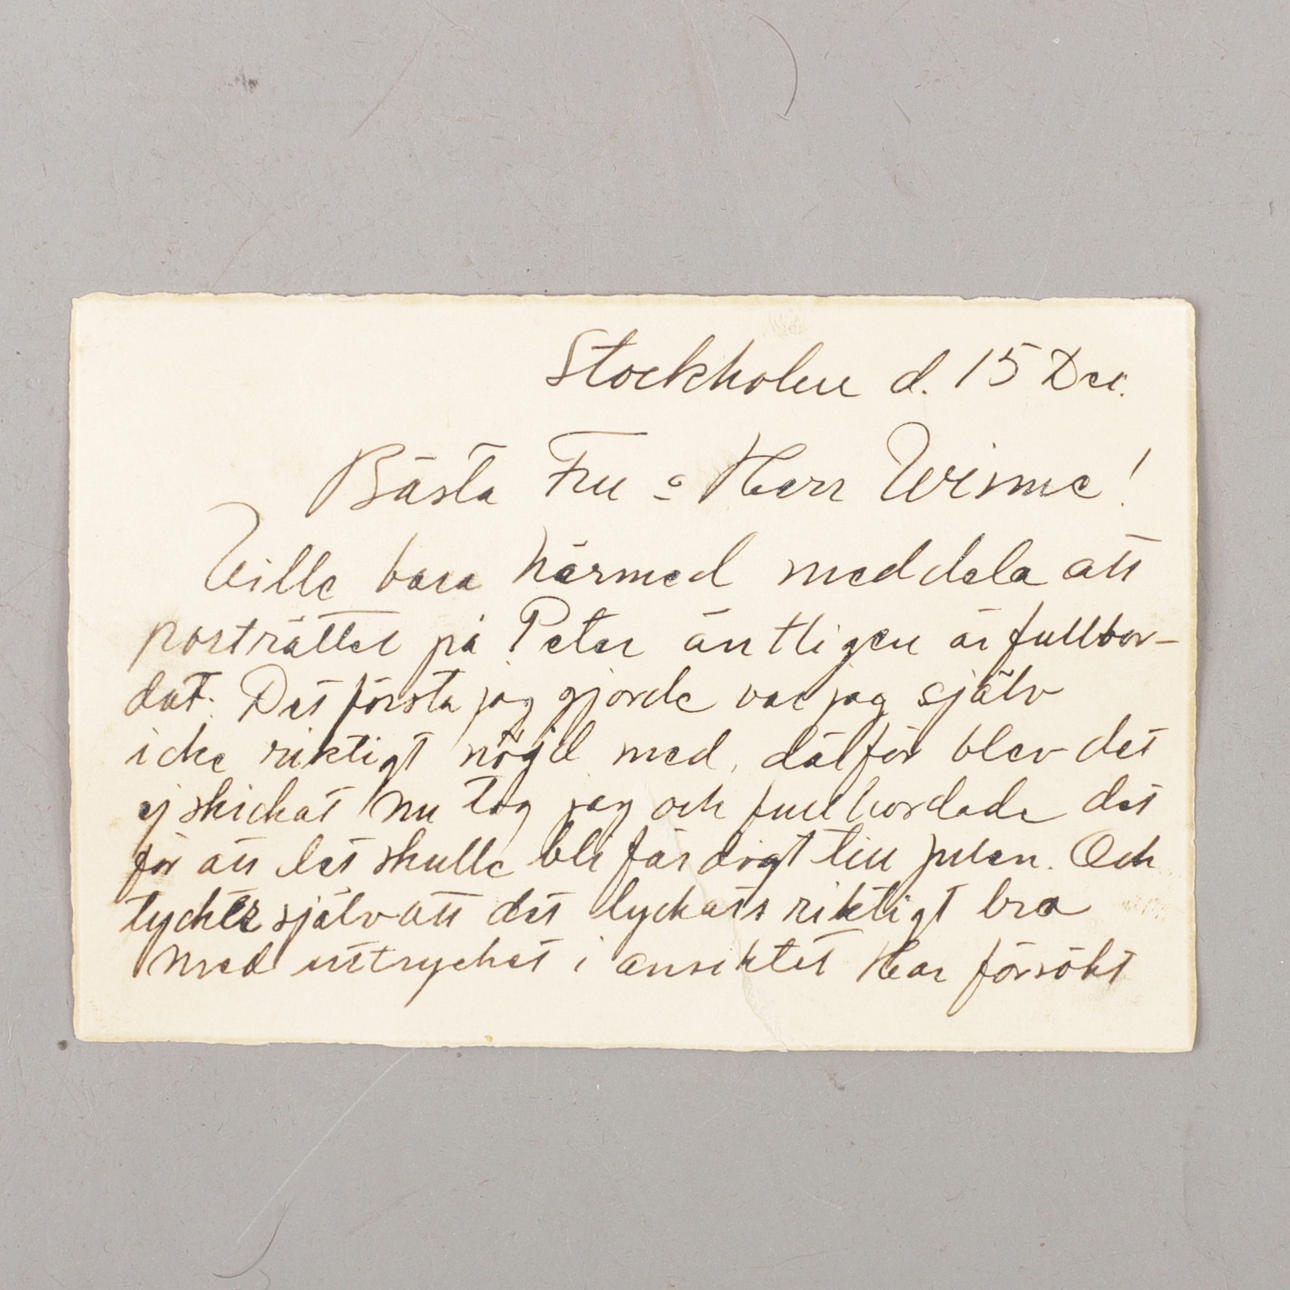 Stockholm d. 15 Dec.
Bästa Fru o Herr Wisme!
Ville bara härmed meddela att
porträttet på Peter äntligen är fullbor-
dat. Det första jag gjorde var jag själv
icke riktigt nöjd med, därför blev det
ej skickat. Nu tog jag och fullbordade det
för att det skulle bli färdigt till julen. Och
tycker själv att det lyckats riktigt bra
med uttrycket i ansiktet Har försökt